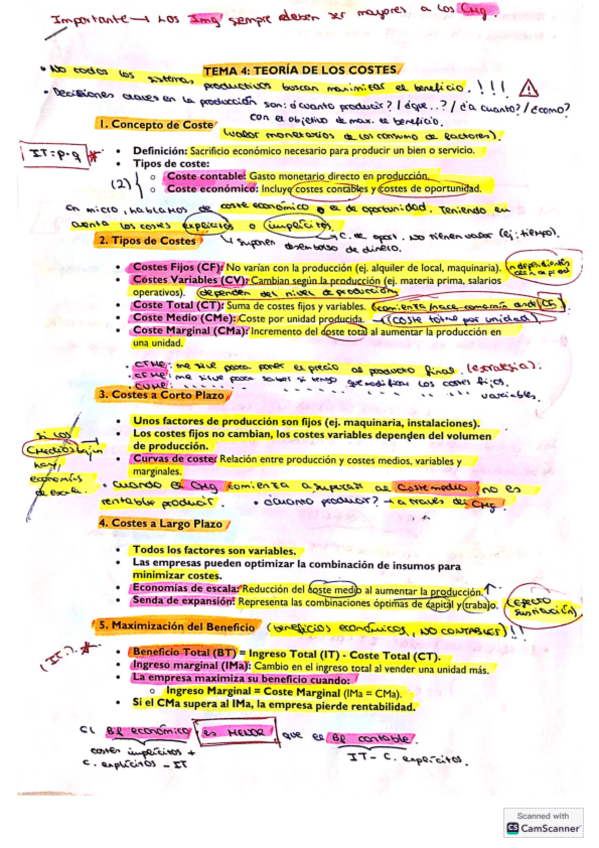 Importante → Los Img siempre deben ser mayores a los CMg.
TEMA 4: TEORÍA DE LOS COSTES
• No todos los sistemas productivos buscan maximizar el beneficio. !!! ⚠
• Decisiones claves en la producción son: ¿cuanto producir? / ¿que..? / ¿a cuanto? / ¿como?
con el objetivo de max. el beneficio.
1. Concepto de Coste
(valor monetarios de los consumo de factores).
IT = p · q *
• Definición: Sacrificio económico necesario para producir un bien o servicio.
• Tipos de coste:
(2)
○ Coste contable: Gasto monetario directo en producción.
○ Coste económico: Incluye costes contables y costes de oportunidad.
En micro, hablamos de coste económico o el de oportunidad. Teniendo en
cuenta los costes explícitos o (implícitos).
2. Tipos de Costes
↳ Suponen desembolso de dinero.
↳ C. de oport. No tienen valor (ej: tiempo).
• Costes Fijos (CF): No varían con la producción (ej. alquiler de local, maquinaria).
• Costes Variables (CV): Cambian según la producción (ej. materia prima, salarios
operativos). (dependen del nivel de producción)
• Coste Total (CT): Suma de costes fijos y variables.
• Coste Medio (CMe): Coste por unidad producida. → (coste total por unidad)
• Coste Marginal (CMa): Incremento del coste total al aumentar la producción en
una unidad.
• CTMe: me sirve para poner el precio al producto final.
• CFMe: me sirve para saber si tengo que modificar los costes fijos.
• CVMe: " " " " " " " " " variables.
3. Costes a Corto Plazo
• Unos factores de producción son fijos (ej. maquinaria, instalaciones).
• Los costes fijos no cambian, los costes variables dependen del volumen
de producción.
• Curvas de coste: Relación entre producción y costes medios, variables y
marginales.
Si los
CMedios bajan
hay
economías
de escala.
• Cuando el CMg comienza a superar al Coste medio, no es
rentable producir. • ¿Cuanto producir? → a través del CMg.
4. Costes a Largo Plazo
• Todos los factores son variables.
• Las empresas pueden optimizar la combinación de insumos para
minimizar costes.
• Economías de escala: Reducción del coste medio al aumentar la producción. ↑
• Senda de expansión: Representa las combinaciones óptimas de capital y trabajo.
(efecto
sustitución)
5. Maximización del Beneficio (beneficios económicos, NO CONTABLES)!!
(IT) *
• Beneficio Total (BT) = Ingreso Total (IT) - Coste Total (CT).
• Ingreso marginal (IMa): Cambio en el ingreso total al vender una unidad más.
• La empresa maximiza su beneficio cuando:
○ Ingreso Marginal = Coste Marginal (IMa = CMa).
• Si el CMa supera al IMa, la empresa pierde rentabilidad.
El Bº económico es MENOR que el Bº contable.
costes implícitos +
C. explícitos - IT
IT - C. explícitos.
Scanned with
CS CamScanner